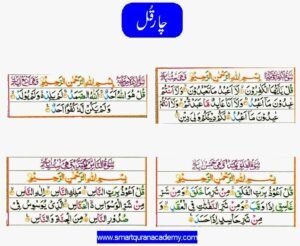 چار قُل
بِسْمِ اللهِ الرَّحْمٰنِ الرَّحِيْمِ
قُلْ يٰٓاَيُّهَا الْكٰفِرُوْنَ لَآ اَعْبُدُ مَا تَعْبُدُوْنَ وَلَآ اَنْتُمْ
عٰبِدُوْنَ مَآ اَعْبُدُ وَلَآ اَنَا عَابِدٌ مَّا عَبَدْتُّمْ وَلَآ اَنْتُمْ
عٰبِدُوْنَ مَآ اَعْبُدُ لَكُمْ دِيْنُكُمْ وَلِيَ دِيْنِ
بِسْمِ اللهِ الرَّحْمٰنِ الرَّحِيْمِ
قُلْ هُوَ اللهُ اَحَدٌ اَللهُ الصَّمَدُ لَمْ يَلِدْ وَلَمْ يُوْلَدْ
وَلَمْ يَكُنْ لَّهٗ كُفُوًا اَحَدٌ
بِسْمِ اللهِ الرَّحْمٰنِ الرَّحِيْمِ
قُلْ اَعُوْذُ بِرَبِّ الْفَلَقِ مِنْ شَرِّ مَا خَلَقَ وَمِنْ شَرِّ
غَاسِقٍ اِذَا وَقَبَ وَمِنْ شَرِّ النَّفّٰثٰتِ فِي الْعُقَدِ وَ
مِنْ شَرِّ حَاسِدٍ اِذَا حَسَدَ
بِسْمِ اللهِ الرَّحْمٰنِ الرَّحِيْمِ
قُلْ اَعُوْذُ بِرَبِّ النَّاسِ مَلِكِ النَّاسِ اِلٰهِ النَّاسِ
مِنْ شَرِّ الْوَسْوَاسِ الْخَنَّاسِ الَّذِيْ يُوَسْوِسُ فِيْ
صُدُوْرِ النَّاسِ مِنَ الْجِنَّةِ وَالنَّاسِ
www.smartquranacademy.com